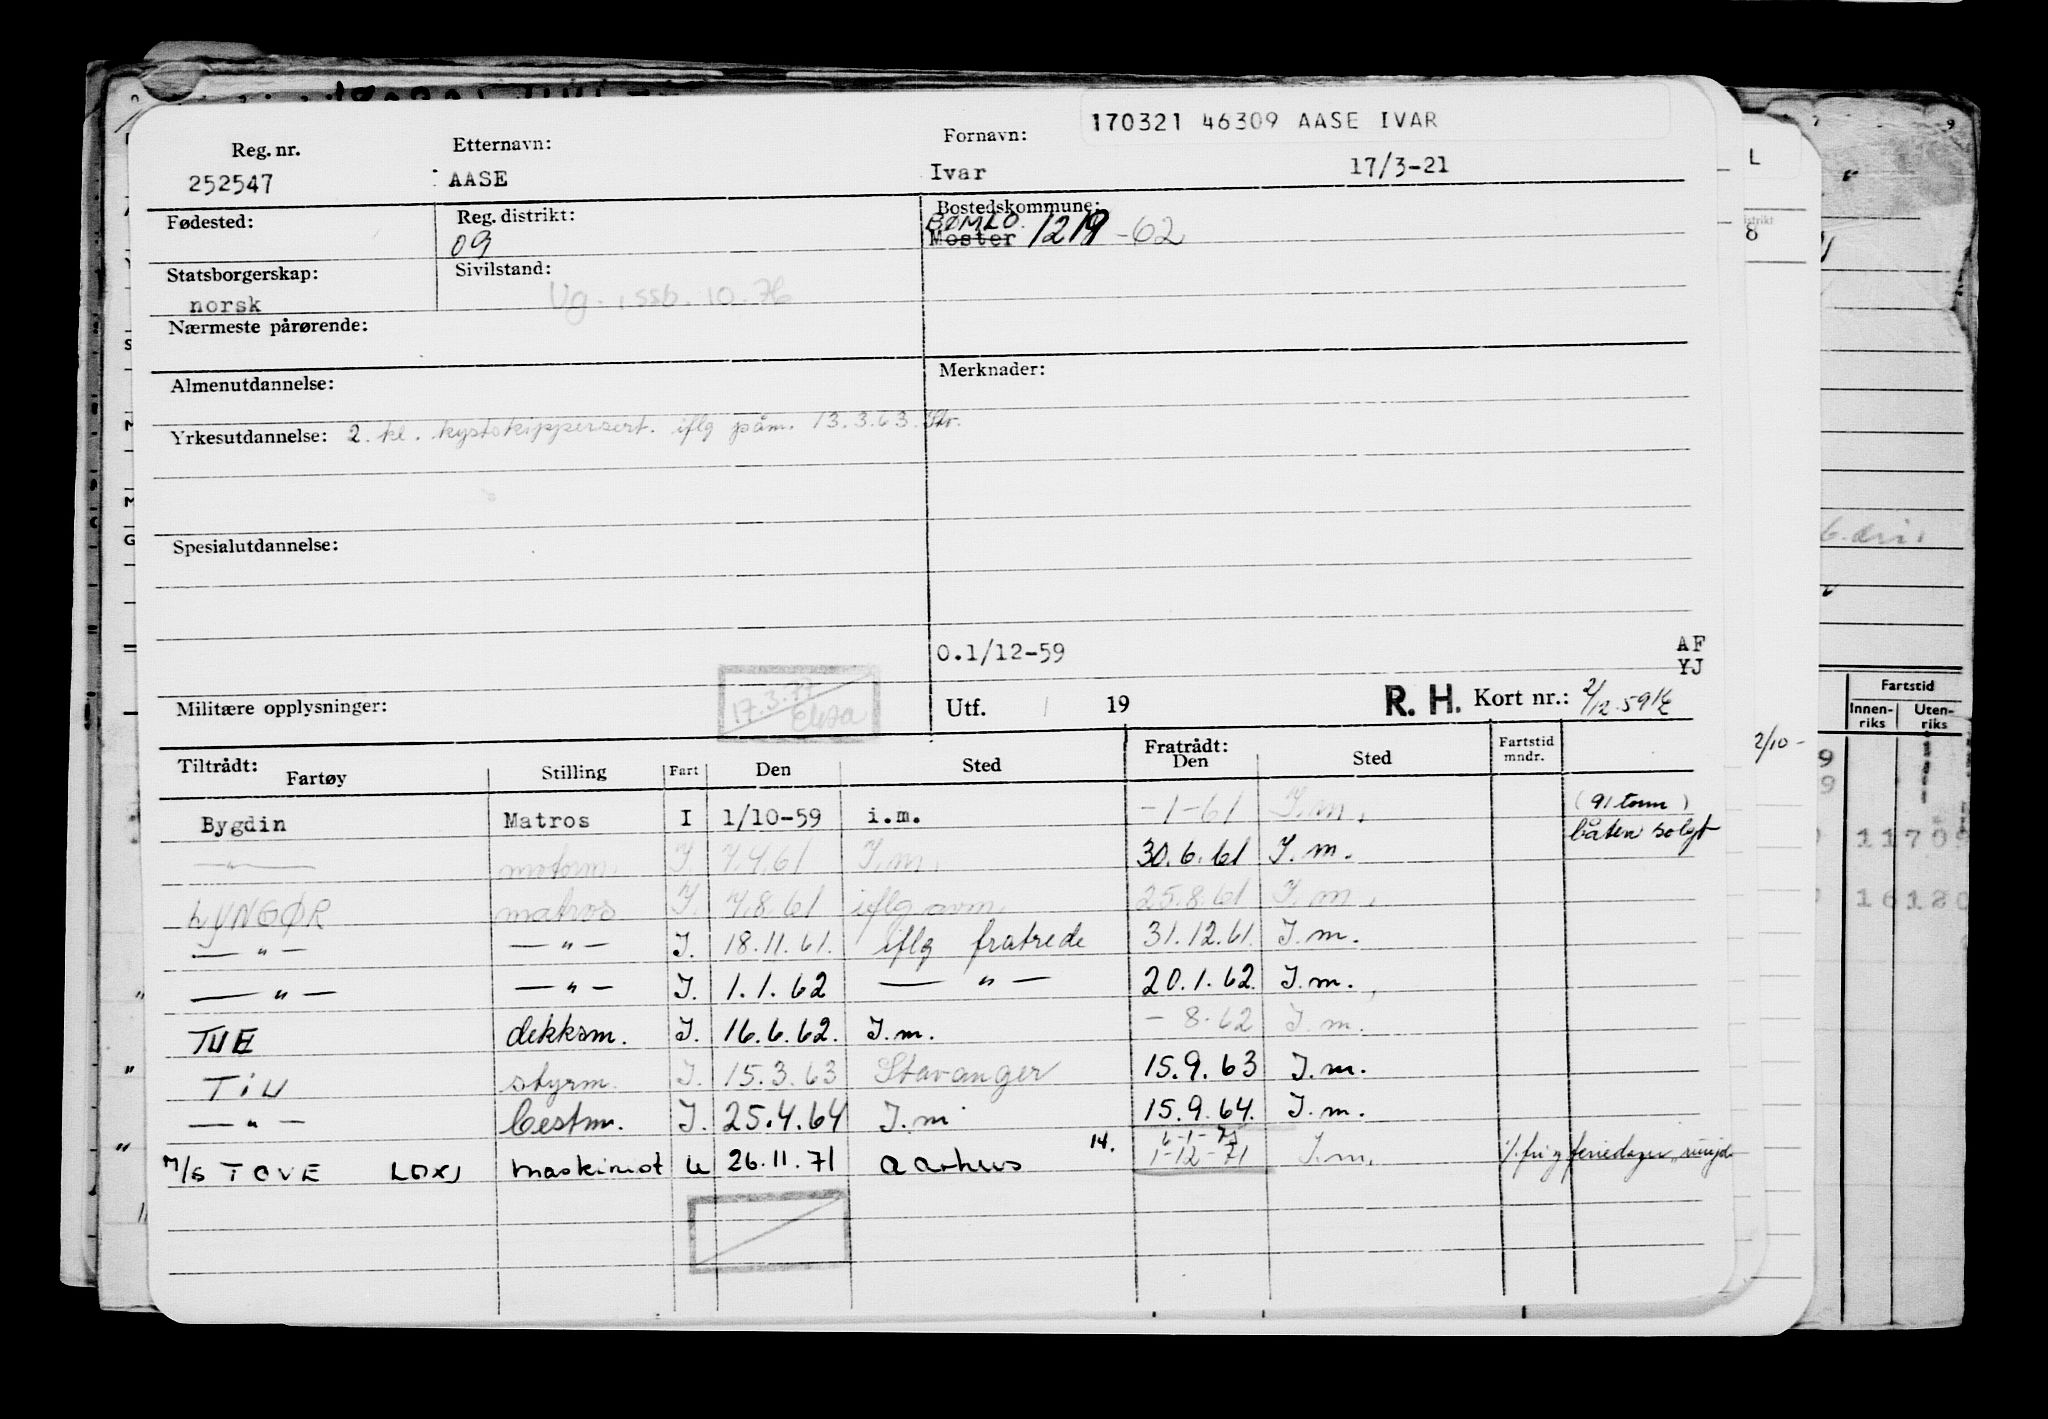 170321 46309 AASE IVAR
Reg. nr. Etternavn: Fornavn:
252547 AASE Ivar 17/3-21
Fødested: Reg. distrikt: Bostedskommune:
09 BØMLO Moster 1219 -62
Statsborgerskap: Sivilstand:
norsk Ug. , ssb. 10.76
Nærmeste pårørende:
Almenutdannelse: Merknader:
Yrkesutdannelse: 2. kl. kystskippersert. iflg påm. 13.3.63.
Spesialutdannelse:
O.1/12-59 AF
YJ
Militære opplysninger: 17.3. Utf. 19 R. H. Kort nr.: 2/12-59
Tiltrådt: Fratrådt: Fartstid
Fartøy Stilling Fart Den Sted Den Sted mndr.
Bygdin Matros I 1/10-59 i.m. -1-61 I.m. (91 tonn)
båten solgt
—"— motorm. I. 7.4.61 I.m. 30.6.61 I.m.
LYNGØR matros I. 7.8.61 iflg avm. 25.8.61 I.m.
—"— —"— I. 18.11.61. iflg fratrede 31.12.61. I.m.
—"— —"— I. 1.1.62 —"— 20.1.62. I.m.
TUE dekksm. I. 16.6.62. I.m. - 8.62 I.m.
TiU styrm. I. 15.3.63 Stavanger 15.9.63 I.m.
—"— bestm. I. 25.4.64 I.m 15.9.64. I.m.
M/S TOVE maskinist U 26.11.71 Aarhus 14. 1-12-71 I.m.
L
8
2/10-
b.dri.
Fartstid
Innen-
riks
Uten-
riks
9
9
11709
16120